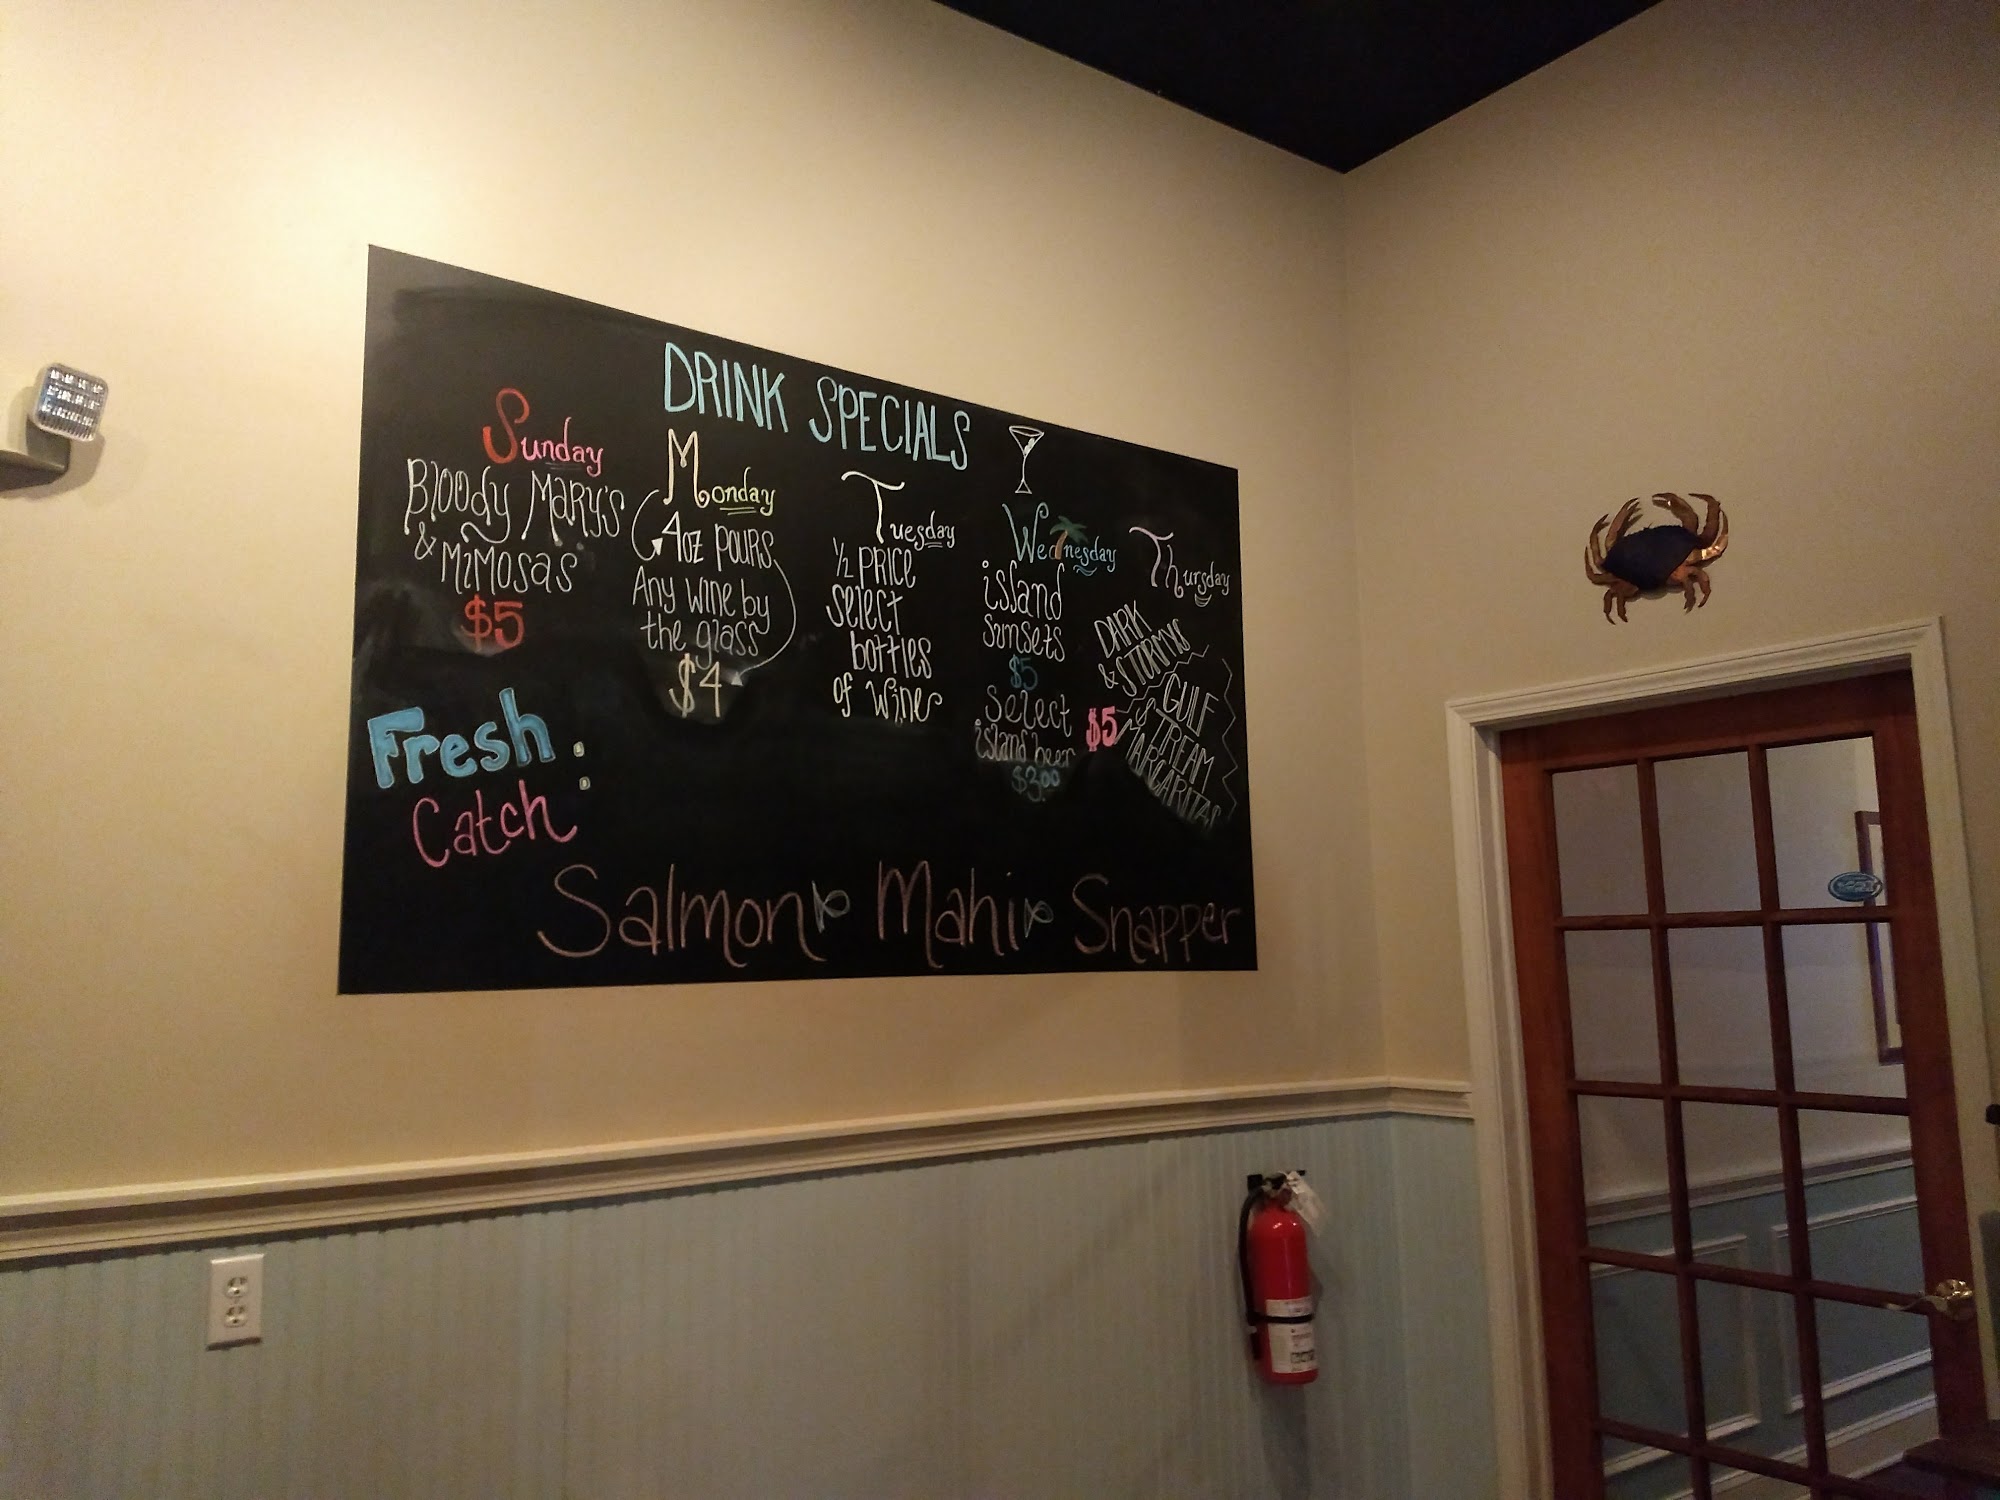 DRINK SPECIALS
Sunday
Bloody Mary's
& Mimosas
$5
Monday
4oz pours
Any wine by
the glass
$4
Tuesday
1/2 price
select
bottles
of wine
Wednesday
island
sunsets
$5
Select
island beer
$3.00
Thursday
DARK
& STORMYS
GULF
STREAM
MARGARITAS
$5
Fresh :
Catch
Salmon Mahi Snapper